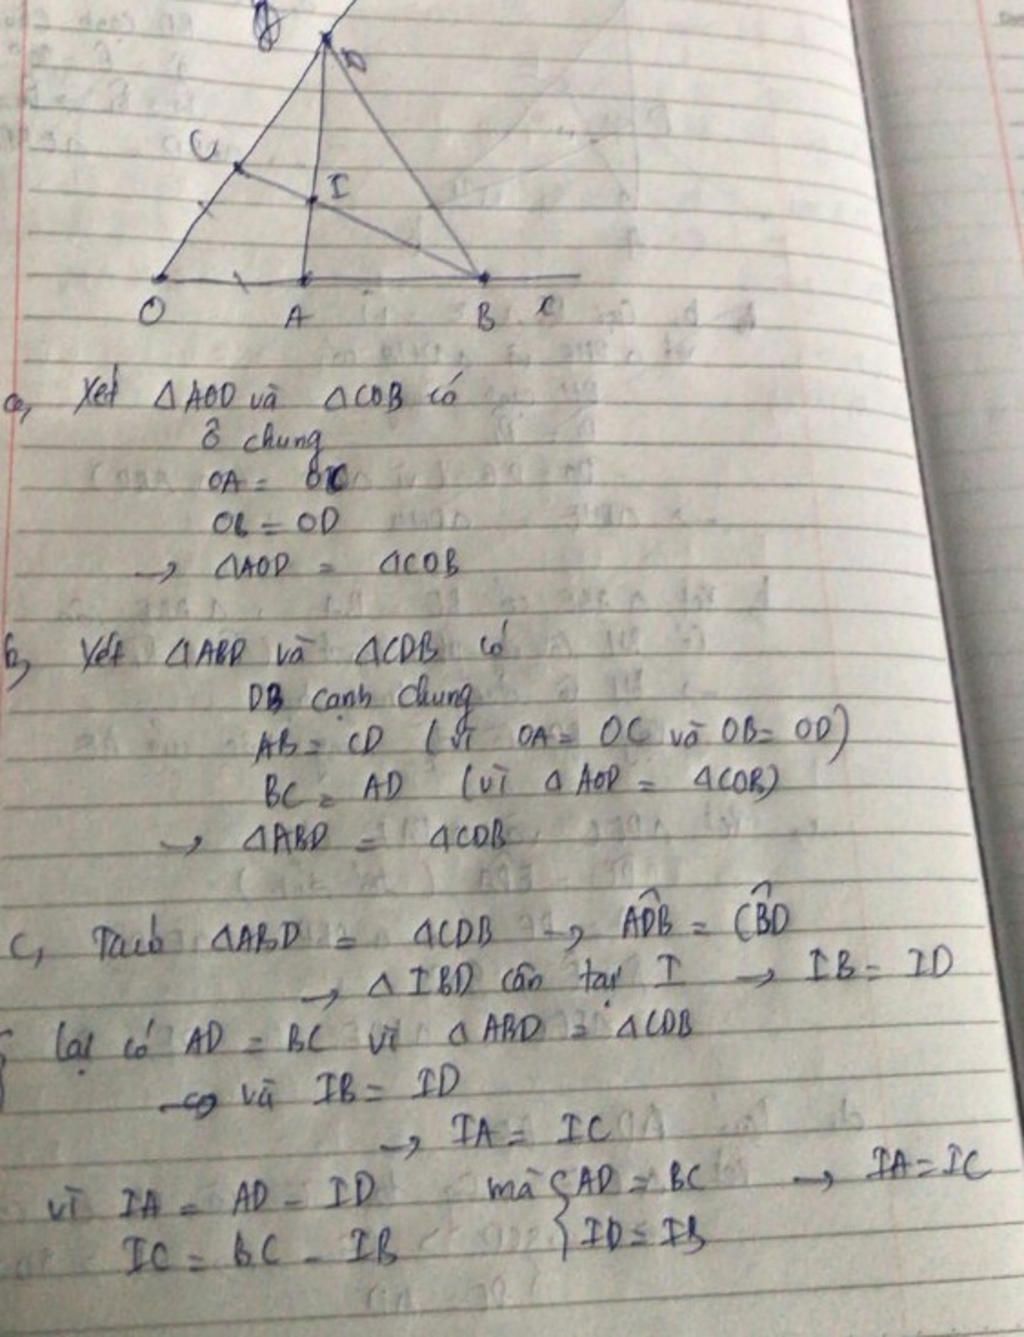 D
C
I
O A B x
a, Xét ΔAOD và ΔCOB có
Ô chung
OA = OC
OB = OD
→ ΔAOD = ΔCOB
b, Xét ΔABD và ΔCDB có
DB cạnh chung
AB = CD (vì OA = OC và OB = OD)
BC = AD (vì ΔAOD = ΔCOB)
→ ΔABD = ΔCDB
c, ΔABD = ΔCDB → \widehat{ADB} = \widehat{CBD}
→ ΔIBD cân tại I → IB = ID
lại có AD = BC vì ΔABD = ΔCDB
và IB = ID
→ IA = IC
vì IA = AD - ID mà { AD = BC → IA = IC
IC = BC - IB { ID = IB